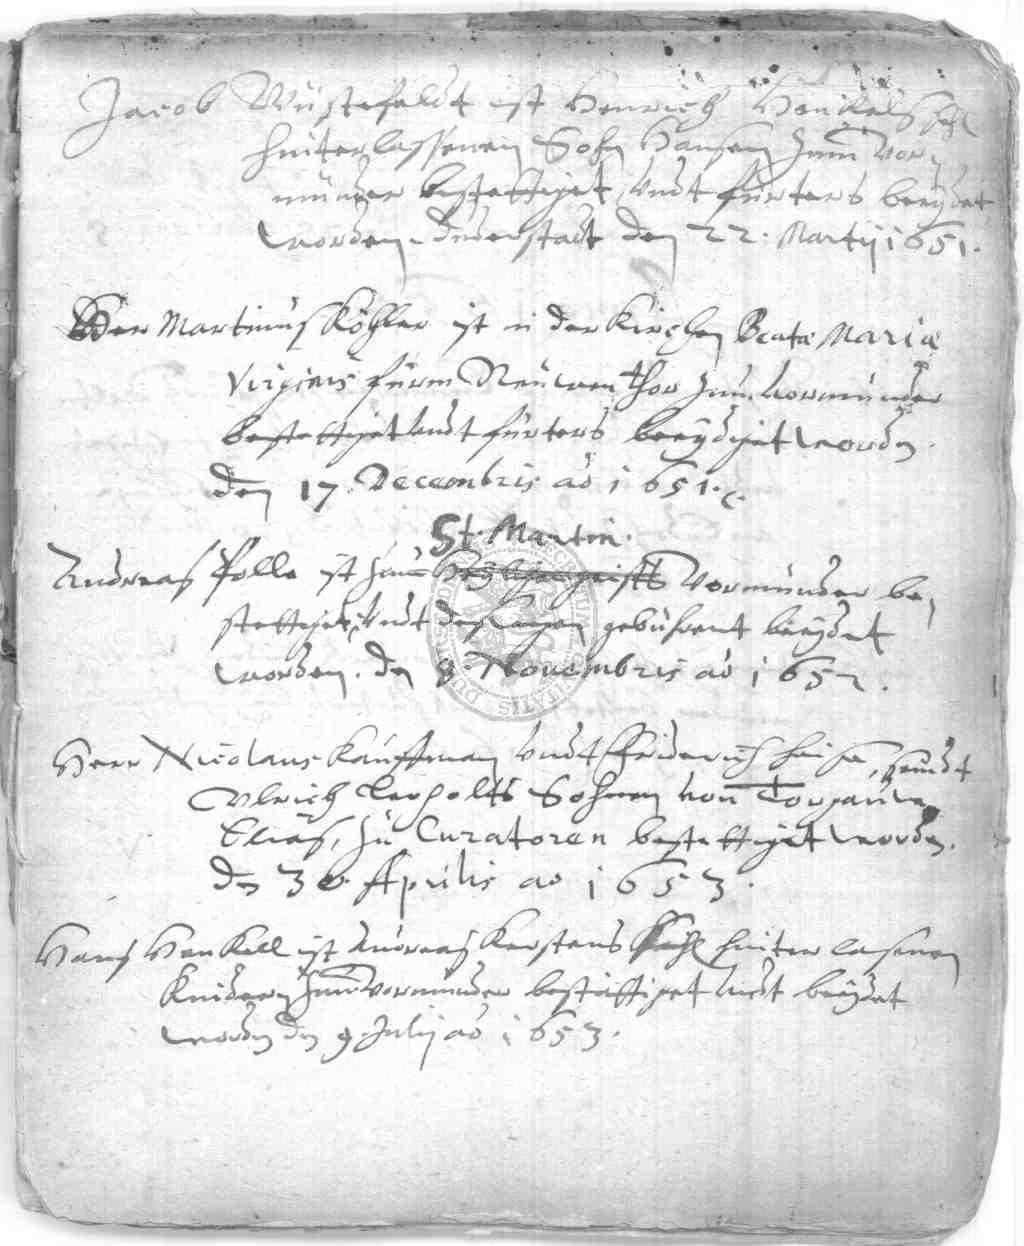 Jacob Wüstefeldt ist Henrich Henkels sehl
hinterlassenen Sohn Hansen zum Vor¬
münder bestettiget, undt fürters beeydet
worden. Duderstadt den 22. Martij 1651.
Herr Martinus Köhler ist in der Kirchen Beatæ Mariæ
Virginis fürm Neüwen thor zum Vormünder
bestettiget undt fürters beeydiget worden.
den 17 Decembris ao 1651.
St. Martin.
Andreas Polle ist zum Heyligen geists Vormünder be¬
stettiget, undt deßwegen gebührent beeydet
worden. den 8. Novembris ao 1652.
Herr Nicolaus Kauffman undt Friderich Heise, seindt
Ulrich Leopolts Sohnen von Torgauw
Elias, zu Curatoren bestettiget worden.
den 30 Aprilis ao 1653.
Hans Henkell ist Andreas Kerstens sehl hinterlasenen
Kindern zum Vormünder bestättiget undt beeydet
worden den 9 Julij ao 1653.